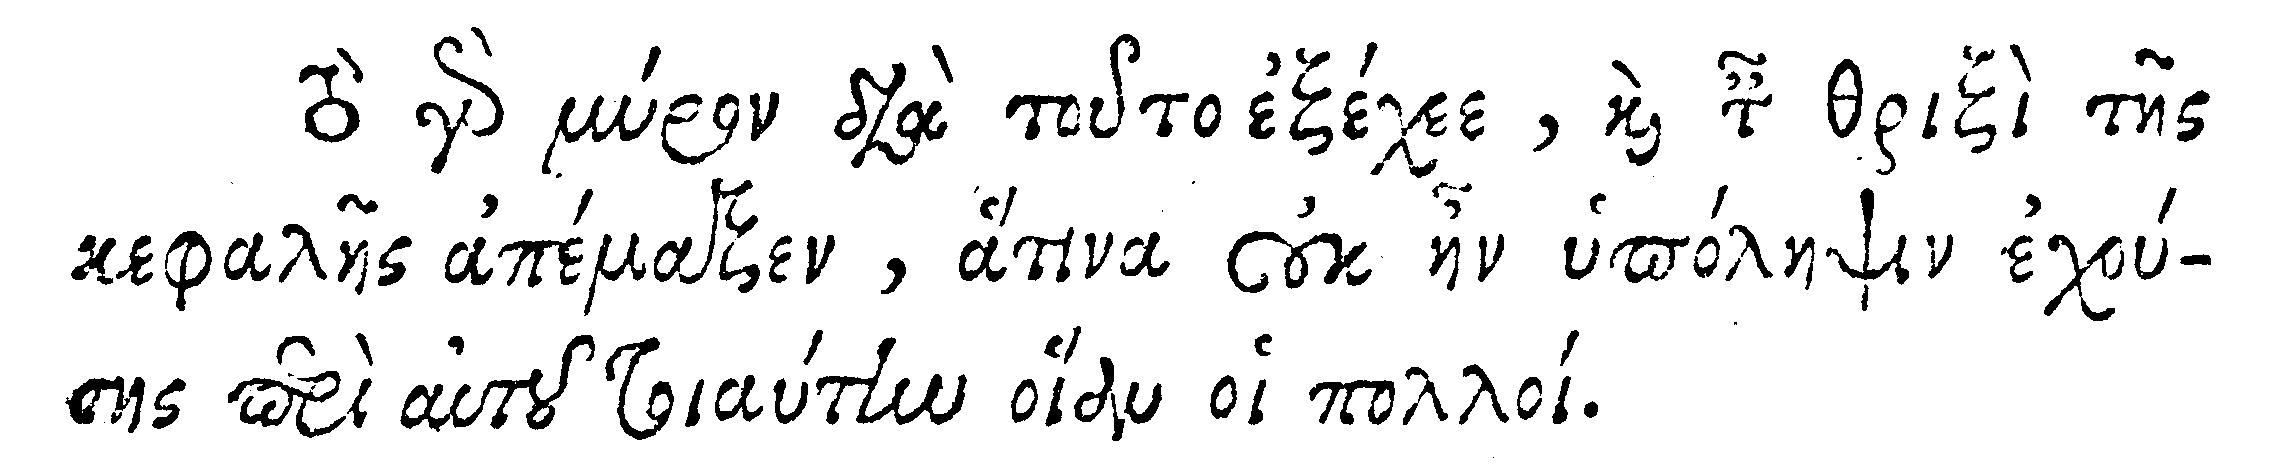 τὸ γὰρ μύρον διὰ τοῦτο ἐξέχεε, καὶ ταῖς θριξὶ τῆς
κεφαλῆς ἀπέμαξεν, ἅτινα οὐκ ἦν ὑπόληψιν ἐχού-
σης περὶ αὐτοῦ τοιαύτην οἵαν οἱ πολλοί.